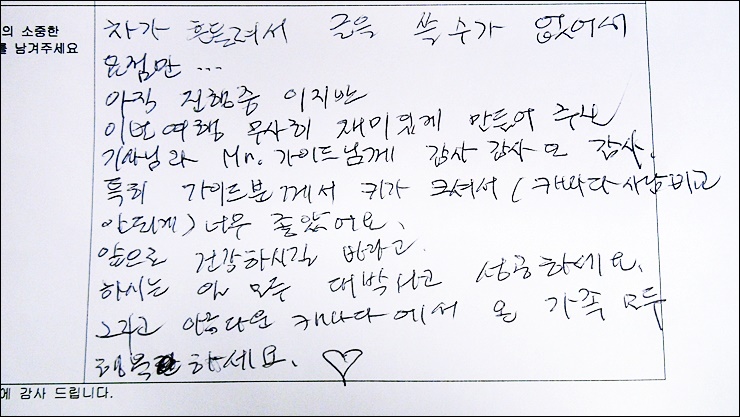 의 소중한
를 남겨주세요
차가 흔들려서 글을 쓸 수가 없어서
요점만 ...
아직 진행중 이지만
이번여행 무사히 재미있게 만들어 주신
기사님과 Mr. 가이드님께 감사 감사 또 감사.
특히 가이드분께서 키가 크셔서 (캐나다사람비교
안되게) 너무 좋았어요.
앞으로 건강하시길 바라고.
하시는 일 모두 대박나고 성공하세요.
그리고 아름다운 캐나다에서 온 가족 모두
행복하세요. ♡
에 감사 드립니다.